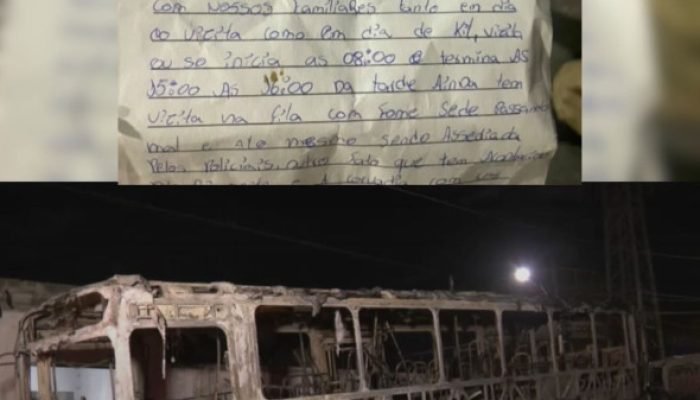 com nossos familiares tanto em dia
do vicita como em dia de Kit, visita
eu so inicia as 08:00 e termina AS
15:00 As 16:00 Da tarde Ainda tem
vicita na fila com fome Sede Passando
mal e Ate mesmo sendo Assediada
Pelos Policiais, outro fato que tem
A com